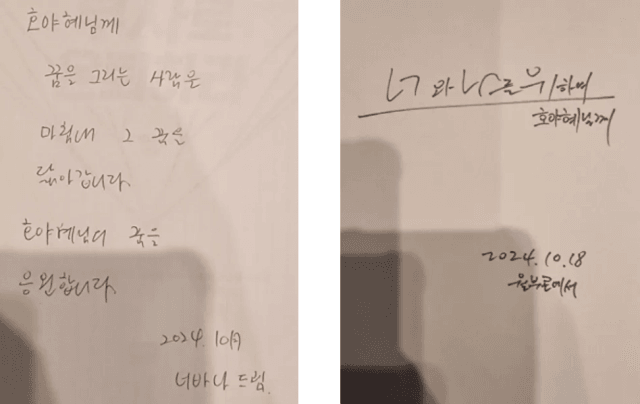 호야헤님께
꿈을 그리는 사람은
마침내 그 꿈을
닮아갑니다.
호야헤님의 꿈을
응원합니다.
2024. 10月
너바나 드림.
너와 나를 위하여
호야헤님께
2024. 10. 18
에서